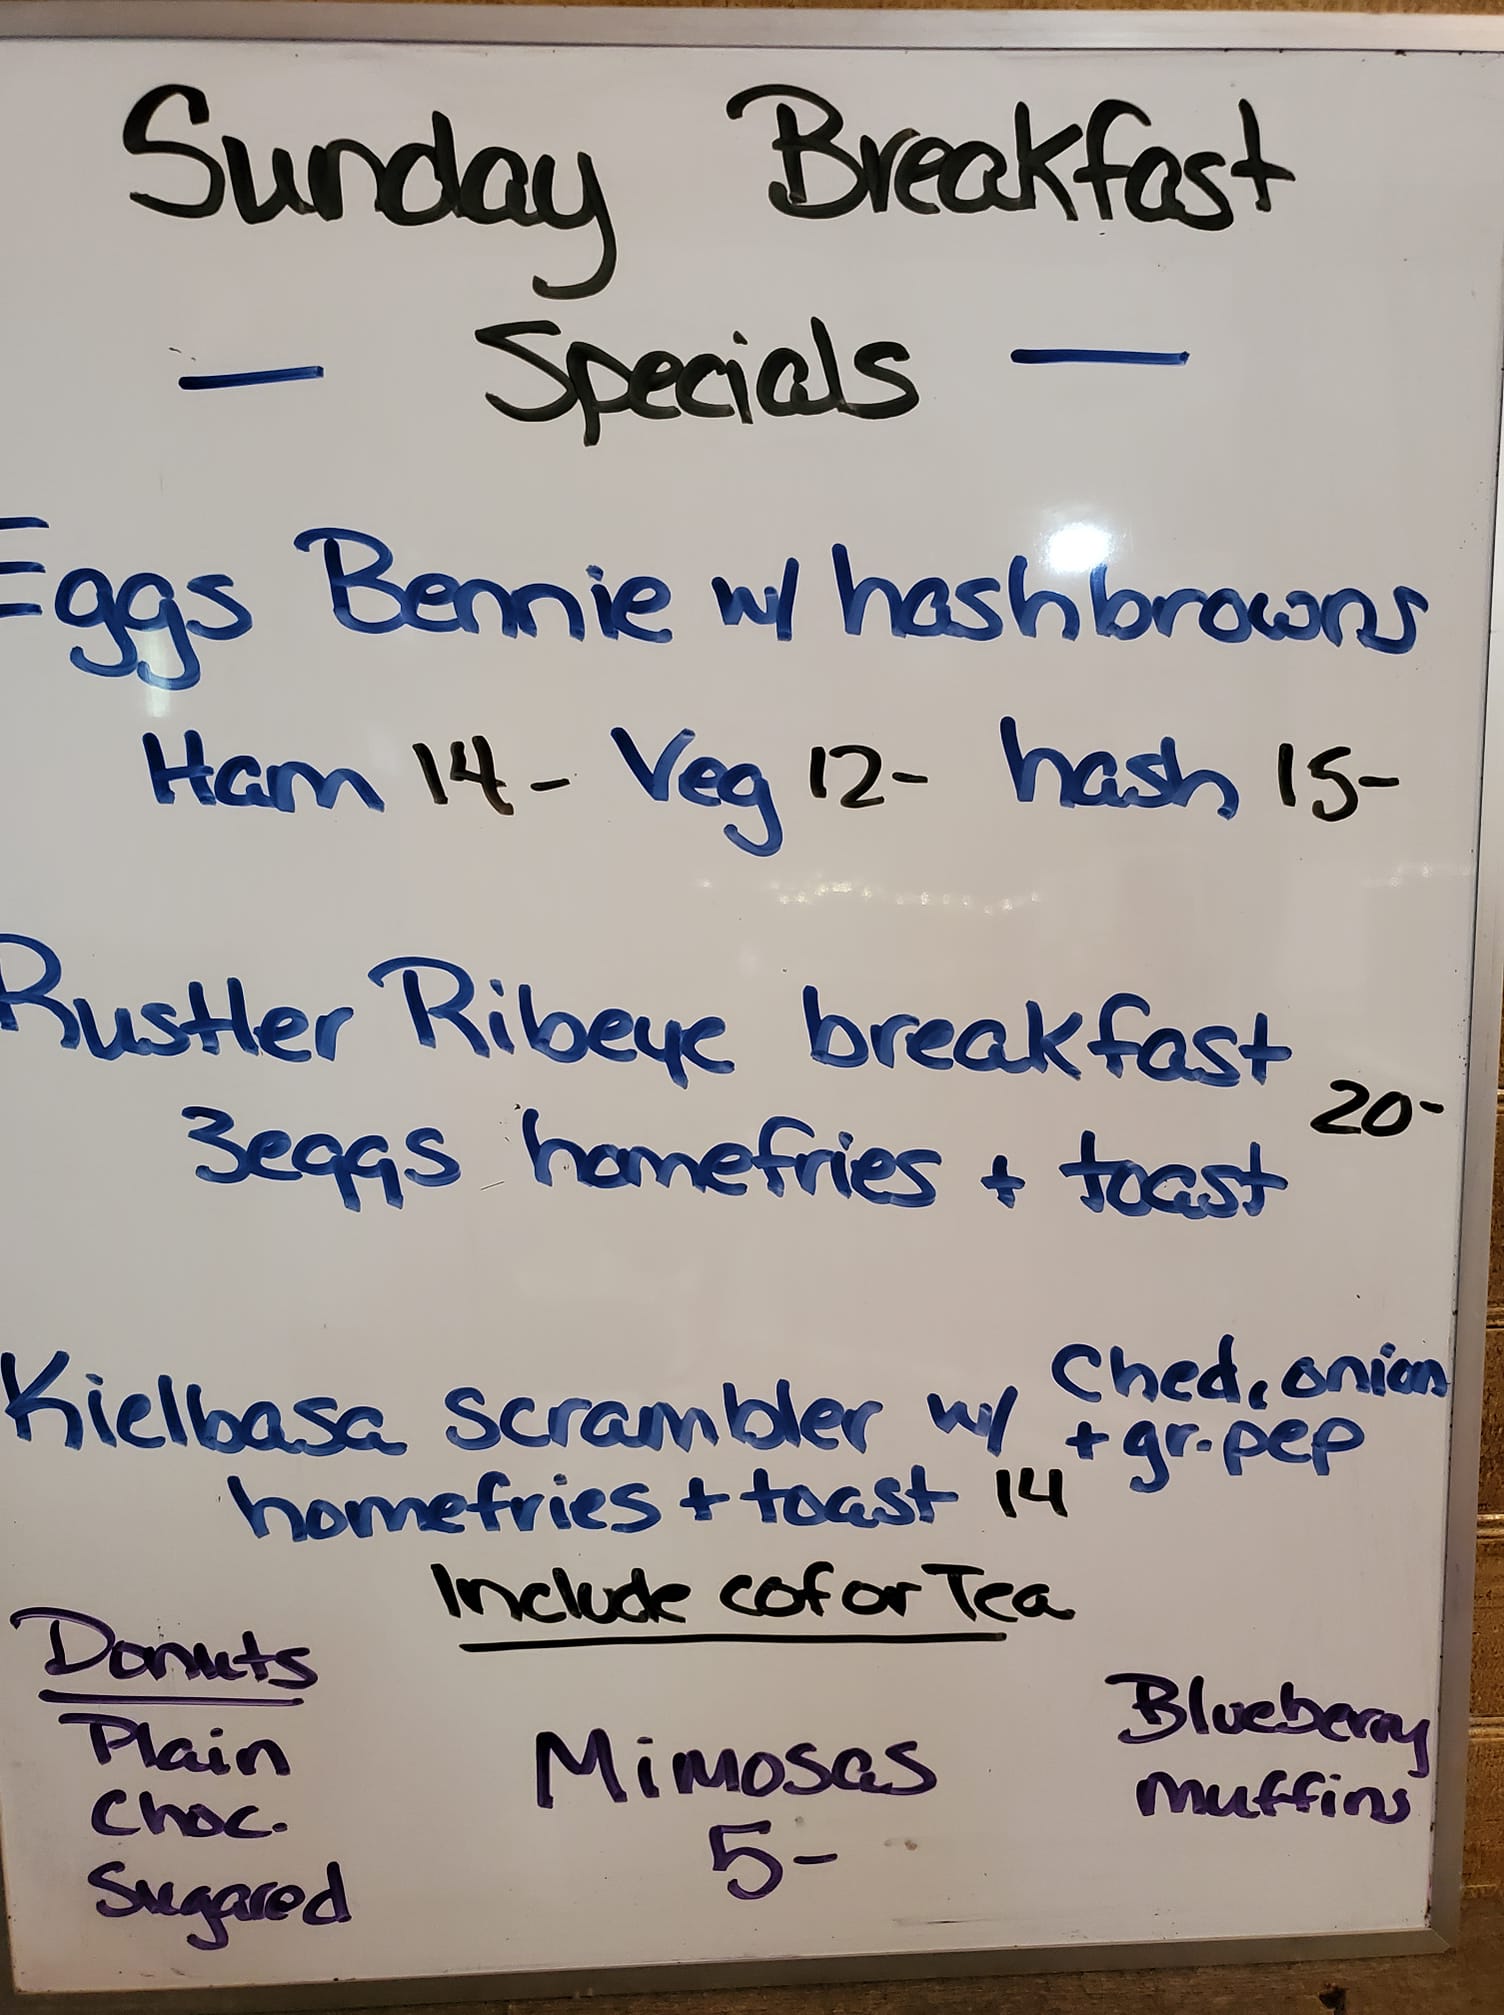 Sunday Breakfast
— Specials —
Eggs Bennie w/ hashbrowns
Ham 14- Veg 12- hash 15-
Rustler Ribeye breakfast
20-
3eggs homefries + toast
Kielbasa scrambler w/ Ched, onion
+ gr. pep
homefries + toast 14
Include cof or Tea
Donuts
Plain
Choc.
Sugared
Mimosas
5-
Blueberry
muffins